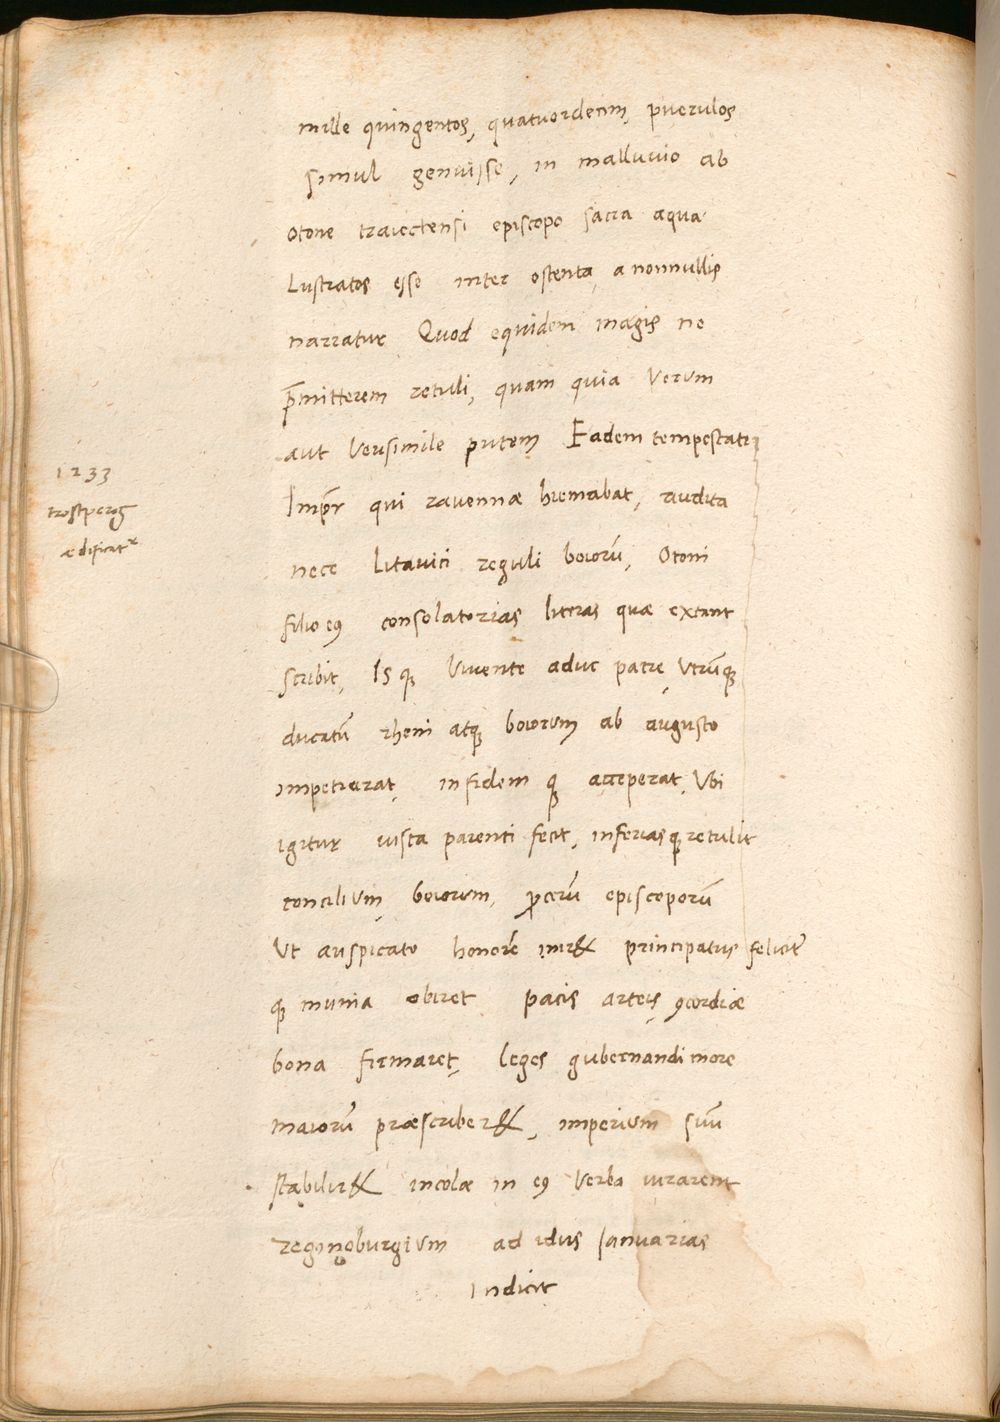 mille quingentos, quatuordecim, puerulos
simul genuisse, in malluvio ab
Otone traiectensi episcopo sacra aqua
Lustratos esse inter ostenta, a nonnullis
narratur Quod equidem magis ne
p̄mitterem retuli, quam quia Verum
aut Verisimile putem Eadem tempestate
Imp̄r qui ravennæ hiemabat, audita
nece Litavici reguli boiorū, Otoni
filio eꝰ consolatorias literas quæ extant
scribit, Is qꝫ Vivente aduc patre, Utrūqꝫ
ducatū rheni atqꝫ boiorum ab augusto
impetrarat, in fidem qꝫ acceperat, Ubi
igitur iusta parenti fecit, inferiasqꝫ retulit
concilium, boiorum, ꝓcerū episcoporū
Ut auspicato honorē inir& principatus felicit͛
qꝫ munia obiret pacis arteis, ꝯcordiæ
bona firmaret, leges gubernandi more
maiorū præscriber&, imperium suū
stabilir& incolæ in eꝰ Verba iurarent
reginoburgium ad idus Ianuarias
Indicit
1233
trostperg
ædificatʳ